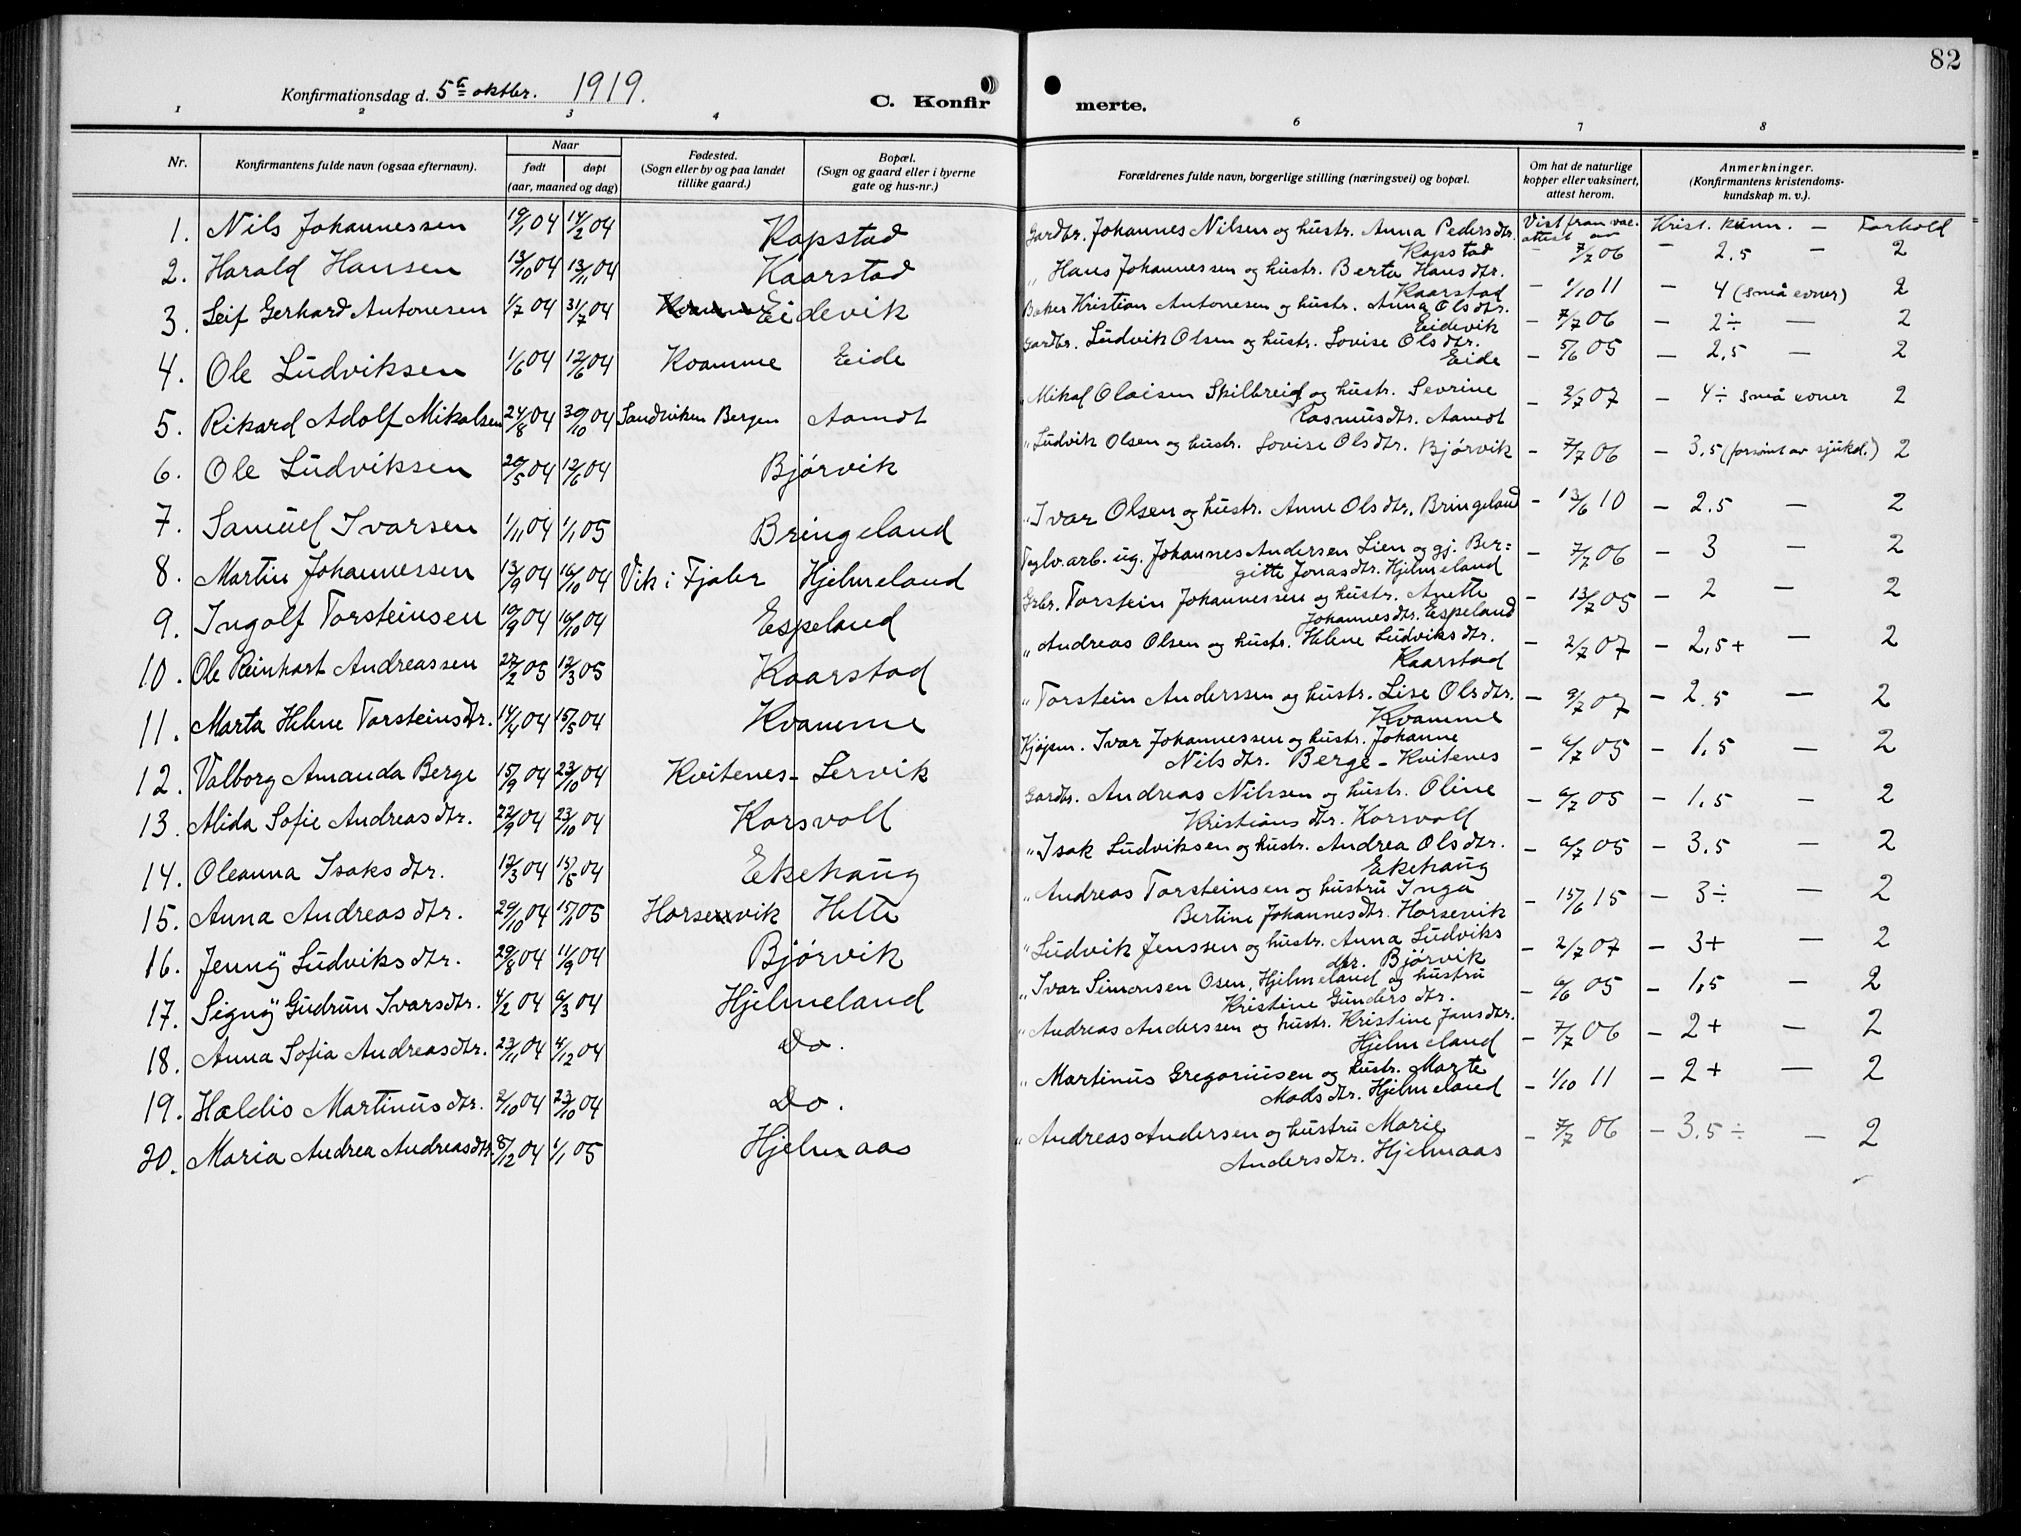 82
Konfirmationsdag d. 5te oktbr. 1919.
C. Konfirmerte.
1 2 3 4 6 7 8
Nr.
Konfirmantens fulde navn (ogsaa efternavn).
Naar
født døpt
(aar, maaned og dag)
Fødested.
(Sogn eller by og paa landet
tillike gaard.)
Bopæl.
(Sogn og gaard eller i byerne
gate og hus-nr.)
Forældrenes fulde navn, borgerlige stilling (næringsvei) og bopæl.
Om hat de naturlige
kopper eller vaksinert,
attest herom.
Anmerkninger.
(Konfirmantens kristendoms-
kundskap m. v.).
1. Nils Johannessen 19/1 04 14/2 04 Kopstad Gardbr. Johannes Nilsen og hustr. Anna Pedersdtr. Vist fram vac. Krist. kunn. — Forhold
Kopstad attest av - 7/7 06 — 2,5 — 2
2. Harald Hansen 13/10 04 13/11 04 Kaarstad " Hans Johannessen og hustr. Berta Hansdtr.
Kaarstad - 1/10 11 — 4 (små evner) 2
3. Leif Gerhard Antonesen 1/7 04 31/7 04 Eidevik Baker Kristian Antonesen og hustr. Anna Olsdtr.
Eidevik - 7/7 06 — 2÷ — 2
4. Ole Ludviksen 1/6 04 12/6 04 Kvamme Eide Gardbr. Ludvik Olsen og hustr. Lovise Olsdtr.
Eide - 5/6 05 — 2,5 — 2
5. Rikard Adolf Mikalsen 24/8 04 30/10 04 Sandviken Bergen Aamot " Mikal Olaisen Skilbreid og hustr. Sevrine
Rasmusdtr. Aamot - 2/7 07 — 4÷ små evner 2
6. Ole Ludviksen 20/5 04 12/6 04 Bjørvik " Ludvik Olsen og hustr. Lovise Olsdtr. Bjørvik - 7/7 06 — 3,5 (forsømt av sjukd.) 2
7. Samuel Ivarsen 1/11 04 1/1 05 Bringeland " Ivar Olsen og hustr. Anne Olsdtr. Bringeland - 13/6 10 — 2,5 — 2
8. Martin Johannessen 13/9 04 16/10 04 Vik i Fjaler Hjelmeland Teglv.arb. ug. Johannes Andersen Lien og gj. Ber=
gitte Jonasdtr. Hjelmeland - 7/7 06 — 3 — 2
9. Ingolf Torsteinsen 10/9 04 16/10 04 Espeland Grbr. Torstein Johannessen og hustr. Anette
Johannesdtr. Espeland - 13/7 05 — 2 — 2
10. Ole Reinhart Andreassen 27/2 05 12/3 05 Kaarstad " Andreas Olsen og hustr. Helene Ludviksdtr.
Kaarstad - 2/7 07 — 2,5+ — 2
11. Marta Helene Torsteinsdtr. 14/4 04 15/5 04 Kvamme " Torstein Anderssen og hustr. Lise Olsdtr.
Kvamme - 9/7 07 — 2,5 — 2
12. Valborg Amanda Berge 15/9 04 23/10 04 Kvitenes - Lervik Kjøpm. Ivar Johannessen og hustr. Johanne
Nilsdtr. Berge - Kvitenes - 6/7 05 — 1,5 — 2
13. Alida Sofie Andreasdtr. 22/9 04 23/10 04 Korsvoll Gardbr. Andreas Nilssen og hustr. Oline
Kristiansdtr. Korsvoll - 6/7 05 — 1,5 — 2
14. Oleanna Isaksdtr. 12/3 04 15/5 04 Ekehaug " Isak Ludviksen og hustr. Andrea Olsdtr.
Ekehaug - 6/7 05 — 3,5 — 2
15. Anna Andreasdtr. 29/10 04 15/1 05 Horsevik Helle " Andreas Torsteinsen og hustru Inga
Bertine Johannesdtr. Horsevik - 15/6 15 — 3÷ — 2
16. Jenny Ludviksdtr. 29/8 04 11/9 04 Bjørvik " Ludvik Jenssen og hustr. Anna Ludviks
dtr. Bjørvik - 2/7 07 — 3+ — 2
17. Signy Gudrun Ivarsdtr. 4/2 04 6/3 04 Hjelmeland " Ivar Simonsen Osen, Hjelmeland og hustru
Kristine Gundersdtr. - 6/6 05 — 1,5 — 2
18. Anna Sofia Andreasdtr. 23/11 04 4/12 04 Do. " Andreas Anderssen og hustr. Kristine Jensdtr.
Hjelmeland - 7/7 06 — 2+ — 2
19. Haldis Martinusdtr. 2/10 04 23/10 04 Do. " Martinus Gregoriusen og hustr. Marte
Madsdtr. Hjelmeland - 1/10 11 — 2+ — 2
20. Maria Andrea Andreasdtr. 8/12 04 1/1 05 Hjelmaas " Andreas Andersen og hustru Marie
Andersdtr. Hjelmaas - 7/7 06 — 3,5÷ — 2